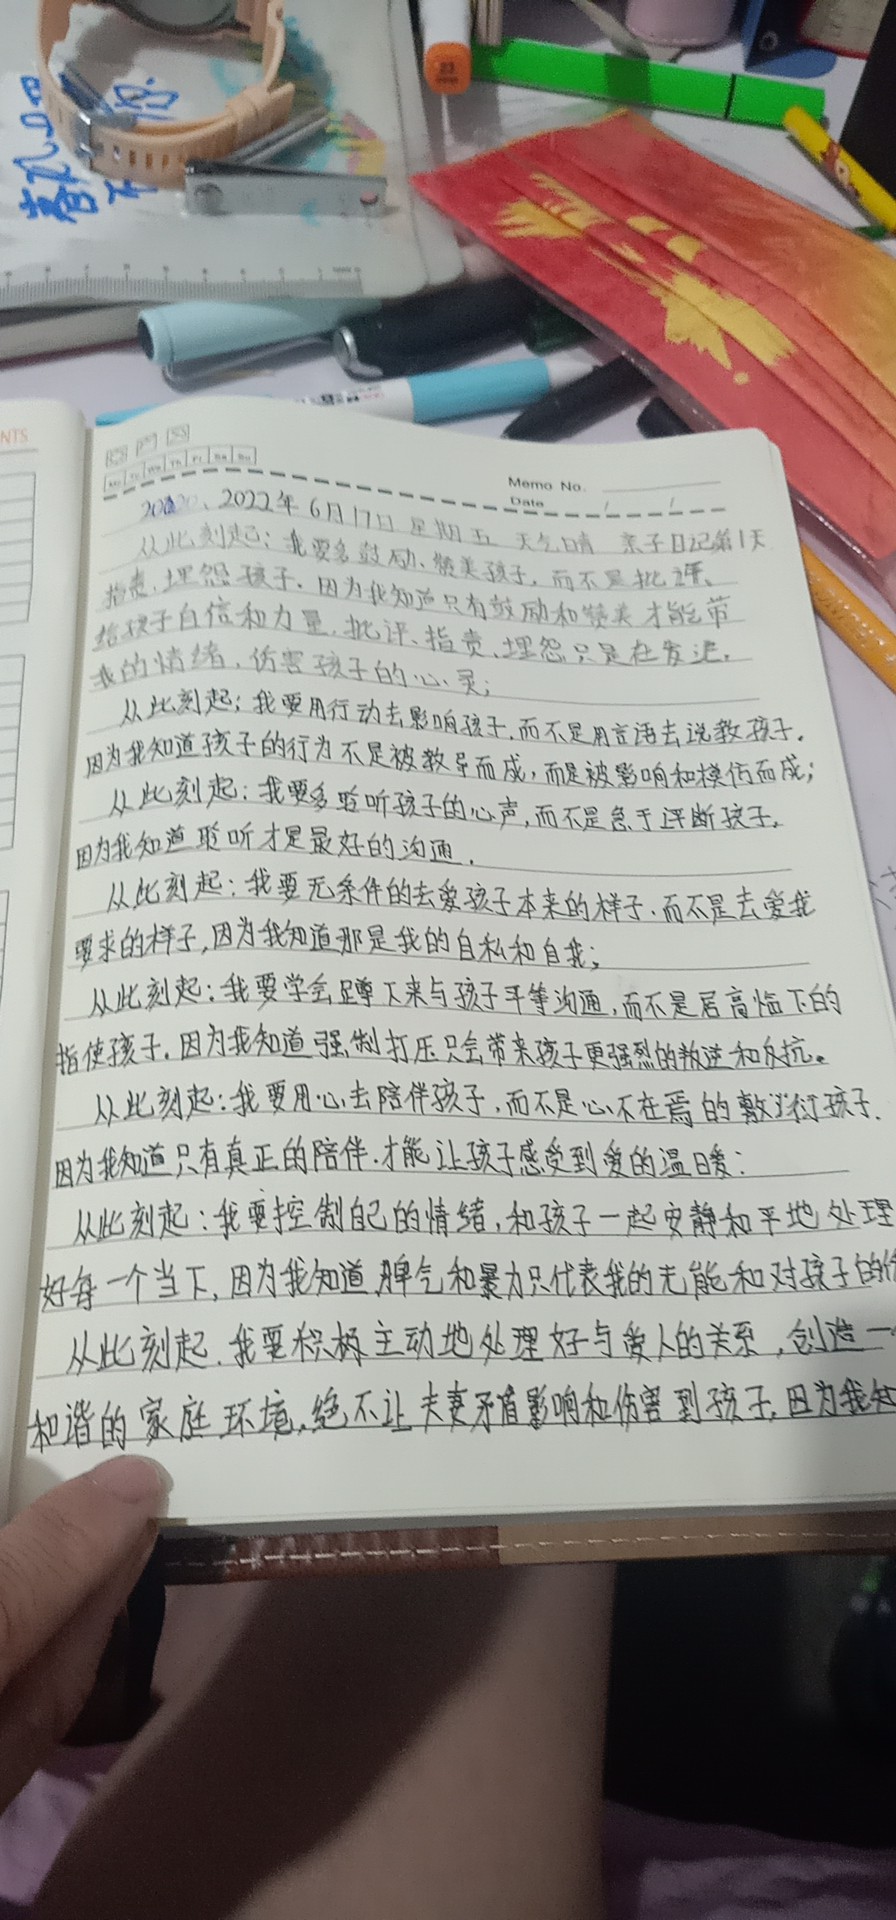 NTS
Mo Tu We Th Fr Sa Su
Memo No.
Date / /
2022年6月17日 星期五 天气晴 亲子日记第1天
从此刻起：我要多鼓励、赞美孩子，而不是批评、
指责、埋怨孩子．因为我知道只有鼓励和赞美才能带
给孩子自信和力量，批评、指责、埋怨只是在发泄，
我的情绪，伤害孩子的心灵；
从此刻起；我要用行动去影响孩子，而不是用言语去说教孩子．
因为我知道孩子的行为不是被教导而成，而是被影响和模仿而成；
从此刻起：我要多聆听孩子的心声，而不是急于评断孩子，
因为我知道聆听才是最好的沟通．
从此刻起：我要无条件的去爱孩子本来的样子．而不是去爱我
要求的样子，因为我知道那是我的自私和自我；
从此刻起：我要学会蹲下来与孩子平等沟通，而不是居高临下的
指使孩子．因为我知道强制打压只会带来孩子更强烈的叛逆和反抗。
从此刻起：我要用心去陪伴孩子，而不是心不在焉的敷衍孩子．
因为我知道只有真正的陪伴．才能让孩子感受到爱的温暖：
从此刻起：我要控制自己的情绪，和孩子一起安静和平地处理
好每一个当下，因为我知道脾气和暴力只代表我的无能和对孩子的
从此刻起．我要积极主动地处理好与爱人的关系，创造一
和谐的家庭环境，绝不让夫妻矛盾影响和伤害到孩子，因为我知